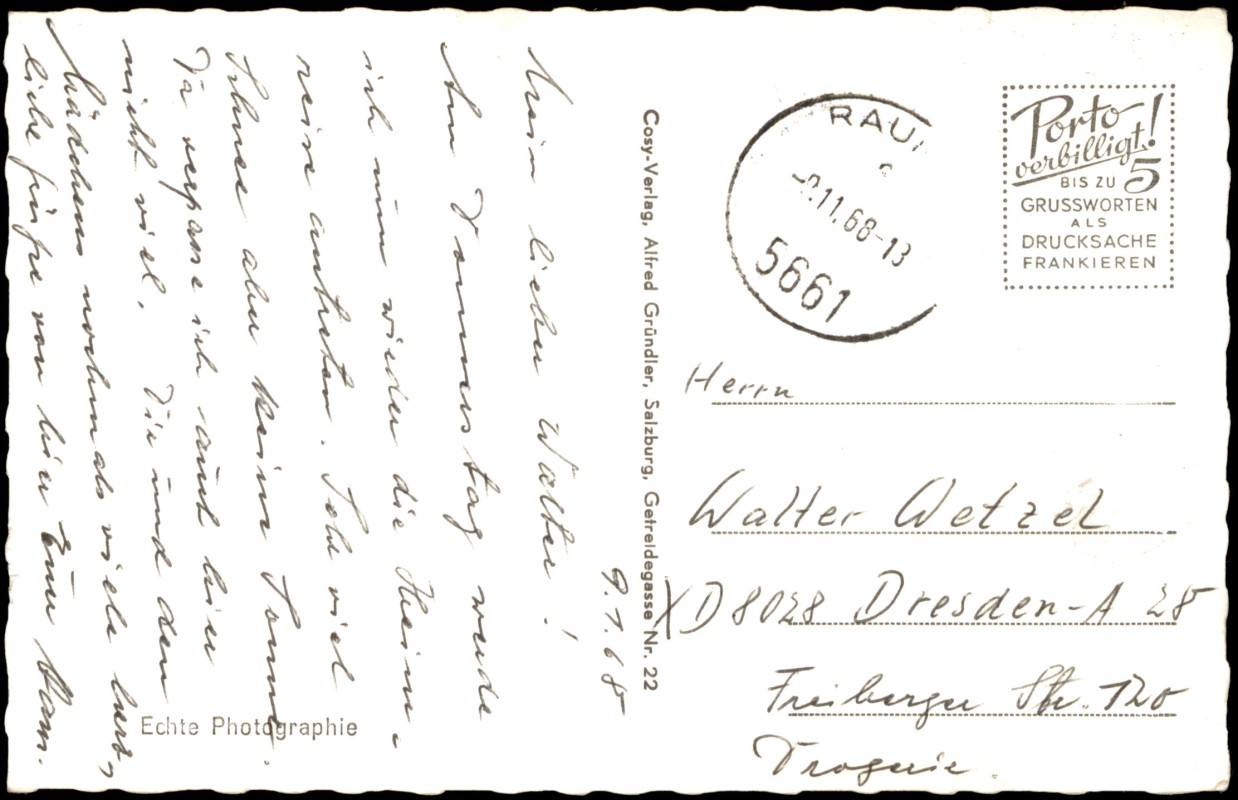 9.1.68
Mein lieber Walter!
Am Donnerstag werde
ich nun wieder die Heim-
reise antreten. Sehr viel
Schnee aber keine Sonne.
Da verpasse ich auch hier
nicht viel. Dir und den
Mädchens nochmals viele herz-
liche Grüße von hier Euer Hans.
Echte Photographie
Cosy-Verlag, Alfred Gründler, Salzburg, Getreidegasse Nr. 22
RAU
.11.68-13
5661
Porto
verbilligt!
BIS ZU 5
GRUSSWORTEN
ALS
DRUCKSACHE
FRANKIEREN
Herrn
Walter Wetzel
X D 8028 Dresden-A 28
Freiberger Str. 120
Drogerie.